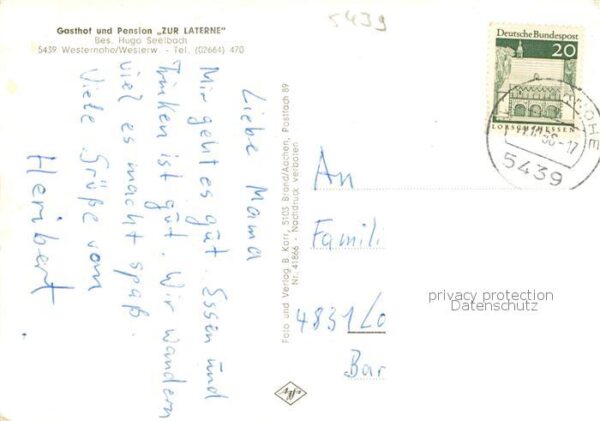 Gasthof und Pension „ZUR LATERNE"
Bes. Hugo Seelbach
5439 Westernohe/Westerw - Tel. (02664) 470
5439
Deutsche Bundespost
20
LORSCH/HESSEN
5439
Liebe Mama
Mir geht es gut. Essen und
Trinken ist gut. Wir wandern
viel es macht spaß.
Viele Grüße vom
Heribert.
Foto und Verlag B. Korr, 5103 Brand/Aachen, Postfach 89
Nr. 41866 - Nachdruck verboten
An
Famili
4831 Lo
Bar
privacy protection
Datenschutz